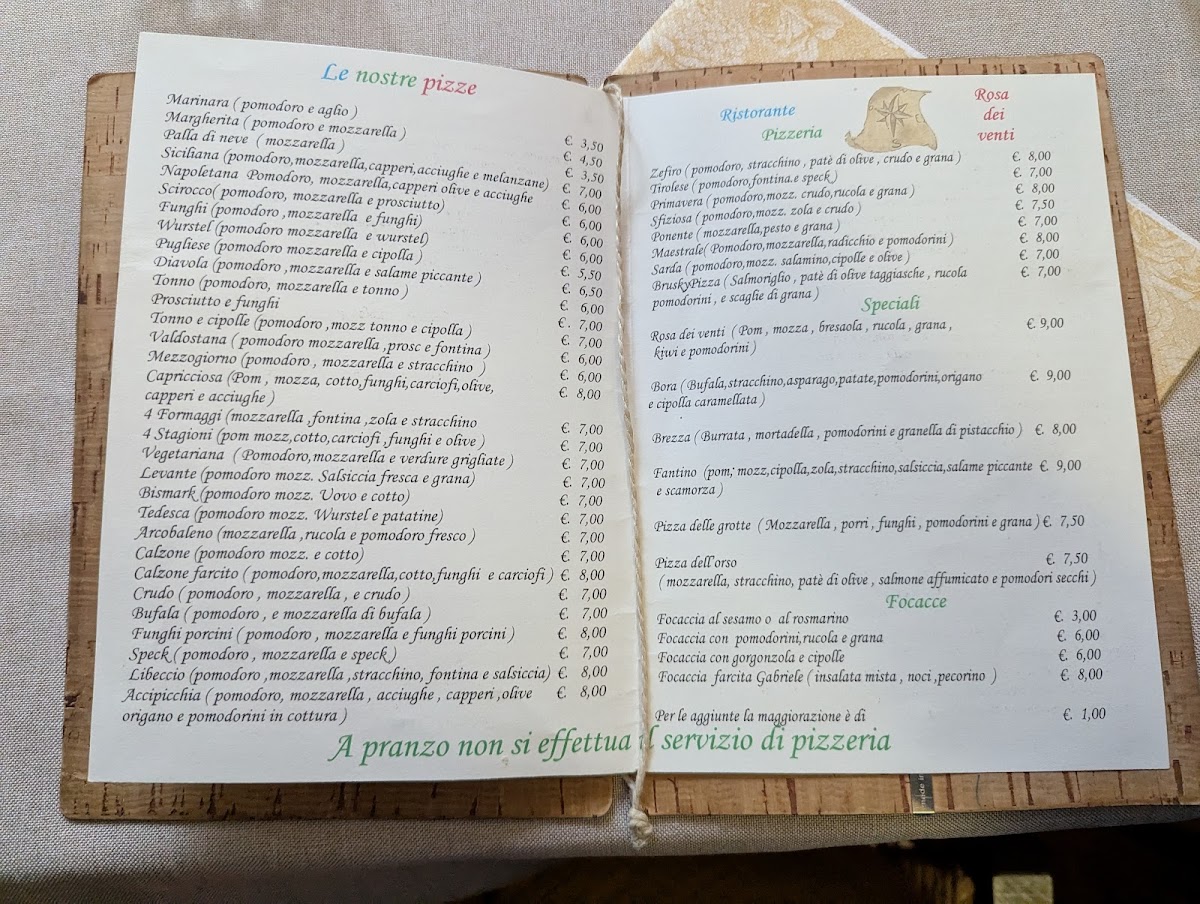 Le nostre pizze
Marinara ( pomodoro e aglio ) € 3,50
Margherita ( pomodoro e mozzarella ) € 4,50
Palla di neve ( mozzarella ) € 3,50
Siciliana (pomodoro,mozzarella,capperi,acciughe e melanzane) € 7,00
Napoletana Pomodoro, mozzarella,capperi olive e acciughe € 6,00
Scirocco( pomodoro, mozzarella e prosciutto) € 6,00
Funghi (pomodoro ,mozzarella e funghi) € 6,00
Wurstel (pomodoro mozzarella e wurstel) € 6,00
Pugliese (pomodoro mozzarella e cipolla ) € 5,50
Diavola (pomodoro ,mozzarella e salame piccante ) € 6,50
Tonno (pomodoro, mozzarella e tonno ) € 6,00
Prosciutto e funghi €. 7,00
Tonno e cipolle (pomodoro ,mozz tonno e cipolla ) €. 7,00
Valdostana ( pomodoro mozzarella ,prosc e fontina ) €. 6,00
Mezzogiorno (pomodoro , mozzarella e stracchino ) €. 6,00
Capricciosa (Pom , mozza, cotto,funghi,carciofi,olive, €. 8,00
capperi e acciughe )
4 Formaggi (mozzarella ,fontina ,zola e stracchino €. 7,00
4 Stagioni (pom mozz,cotto,carciofi ,funghi e olive ) €. 7,00
Vegetariana ( Pomodoro,mozzarella e verdure grigliate ) €. 7,00
Levante (pomodoro mozz. Salsiccia fresca e grana) €. 7,00
Bismark (pomodoro mozz. Uovo e cotto) €. 7,00
Tedesca (pomodoro mozz. Wurstel e patatine) €. 7,00
Arcobaleno (mozzarella ,rucola e pomodoro fresco ) €. 7,00
Calzone (pomodoro mozz. e cotto) €. 7,00
Calzone farcito ( pomodoro,mozzarella,cotto,funghi e carciofi ) €. 8,00
Crudo ( pomodoro , mozzarella , e crudo ) €. 7,00
Bufala ( pomodoro , e mozzarella di bufala ) €. 7,00
Funghi porcini ( pomodoro , mozzarella e funghi porcini ) €. 8,00
Speck ( pomodoro , mozzarella e speck ) €. 7,00
Libeccio (pomodoro ,mozzarella ,stracchino, fontina e salsiccia) €. 8,00
Accipicchia ( pomodoro, mozzarella , acciughe , capperi ,olive €. 8,00
origano e pomodorini in cottura )
Ristorante
Pizzeria
Rosa
dei
venti
Zefiro ( pomodoro, stracchino , patè di olive , crudo e grana ) €. 8,00
Tirolese ( pomodoro,fontina.e speck ) €. 7,00
Primavera ( pomodoro,mozz. crudo,rucola e grana ) €. 8,00
Sfiziosa ( pomodoro,mozz. zola e crudo ) €. 7,50
Ponente ( mozzarella,pesto e grana ) €. 7,00
Maestrale( Pomodoro,mozzarella,radicchio e pomodorini ) €. 8,00
Sarda ( pomodoro,mozz. salamino,cipolle e olive ) €. 7,00
BruskyPizza ( Salmoriglio , patè di olive taggiasche , rucola €. 7,00
pomodorini , e scaglie di grana )
Speciali
Rosa dei venti ( Pom , mozza , bresaola , rucola , grana , €. 9,00
kiwi e pomodorini )
Bora ( Bufala,stracchino,asparago,patate,pomodorini,origano €. 9,00
e cipolla caramellata )
Brezza ( Burrata , mortadella , pomodorini e granella di pistacchio ) €. 8,00
Fantino (pom,' mozz,cipolla,zola,stracchino,salsiccia,salame piccante €. 9,00
e scamorza )
Pizza delle grotte ( Mozzarella , porri , funghi , pomodorini e grana ) €. 7,50
Pizza dell'orso €. 7,50
( mozzarella, stracchino, patè di olive , salmone affumicato e pomodori secchi )
Focacce
Focaccia al sesamo o al rosmarino €. 3,00
Focaccia con pomodorini,rucola e grana €. 6,00
Focaccia con gorgonzola e cipolle €. 6,00
Focaccia farcita Gabriele ( insalata mista , noci ,pecorino ) €. 8,00
Per le aggiunte la maggiorazione è di €. 1,00
A pranzo non si effettua il servizio di pizzeria
made in